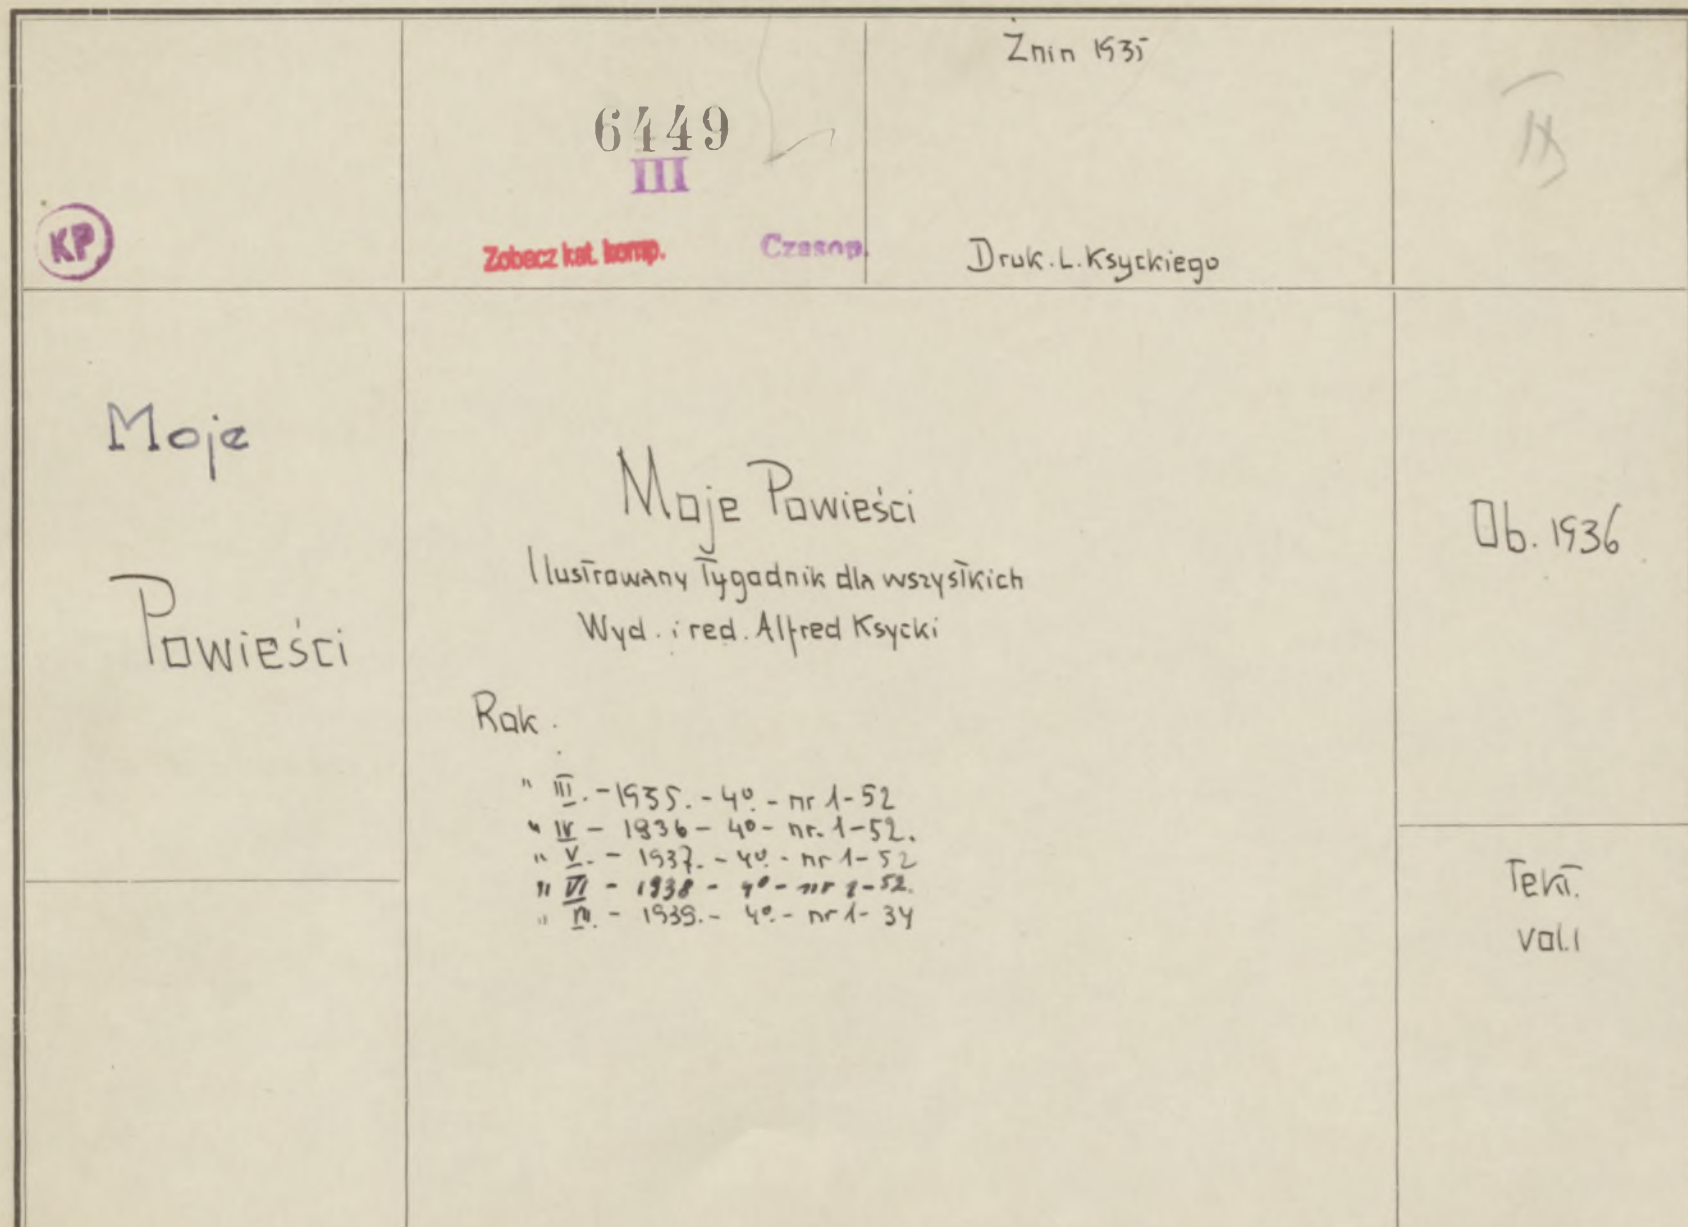 Żnin 1935
6449
III
KP
Zobacz kat. komp.
Czasop.
Druk. L. Ksyckiego
Moje
Powieści
Moje Powieści
Ilustrowany Tygodnik dla wszystkich
Wyd. i red. Alfred Ksycki
Rok.
" III. - 1935. - 4º. - nr 1-52
" IV - 1936 - 4º - nr. 1-52.
" V. - 1937. - 4º. - nr 1-52
" VI - 1938 - 4º - nr 1-52.
" VII. - 1939. - 4º. - nr 1-34
Ob. 1936
Tekt.
vol. 1